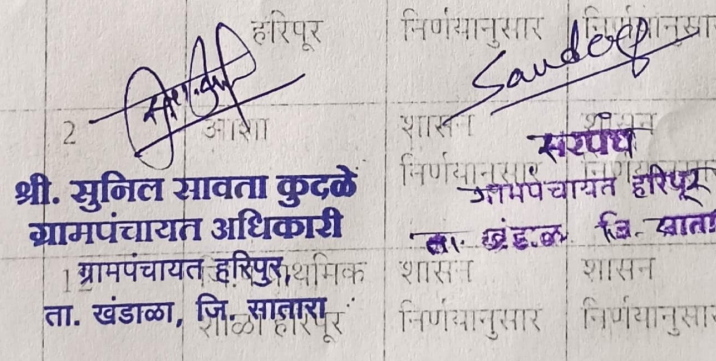 हरिपूर निर्णयानुसार निर्णयानुसार
Sandeep
2 आशा शासन शासन
निर्णयानुसार
सरपंच
ग्रामपंचायत हरिपूर
ता. खंडाळा जि. सातारा
श्री. सुनिल सावता कुदळे
ग्रामपंचायत अधिकारी
ग्रामपंचायत हरिपुर,
ता. खंडाळा, जि. सातारा
प्राथमिक शासन शासन
शाळा हरिपूर निर्णयानुसार निर्णयानुसार